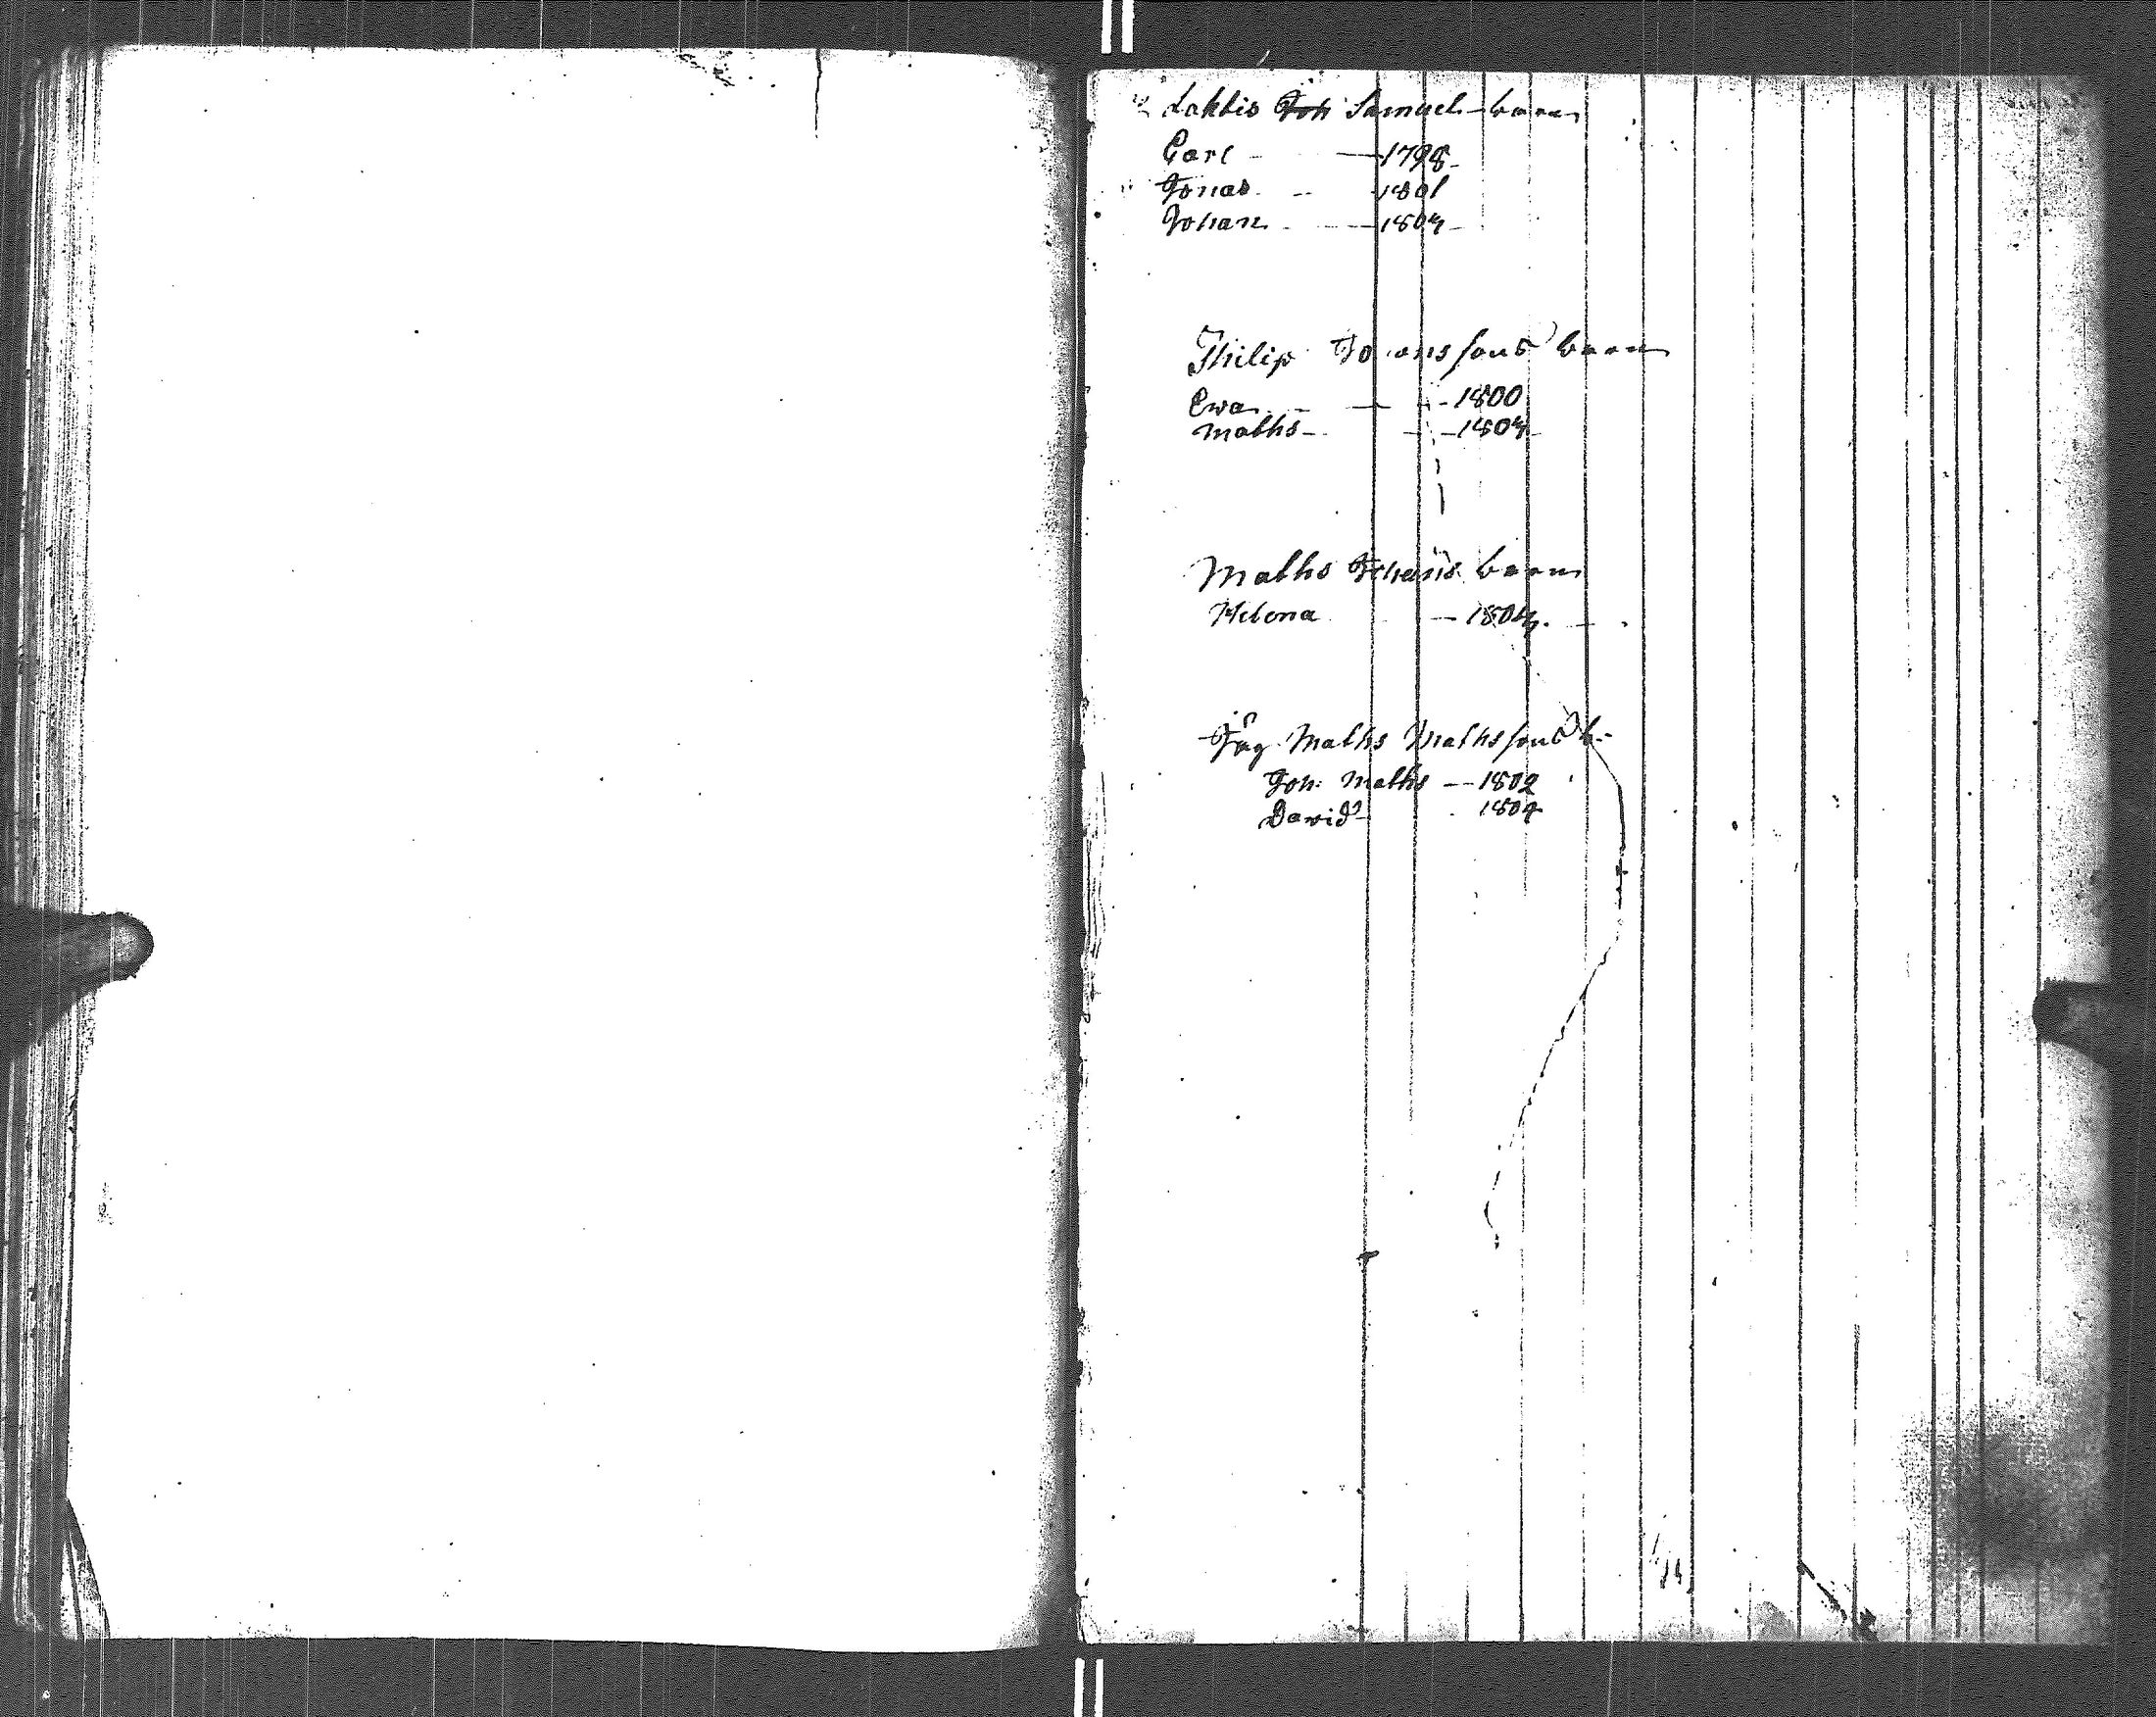 Lahtis Joh Samuel barn
Carl - 1798
Jonas - 1801
Johan - 1804
Philip Johanssons barn
Ewa - 1800
Maths - 1804
Maths Johans barn
Helena - 1804
Maths Mathssons b.
Joh. Maths - 1802
David - 1804